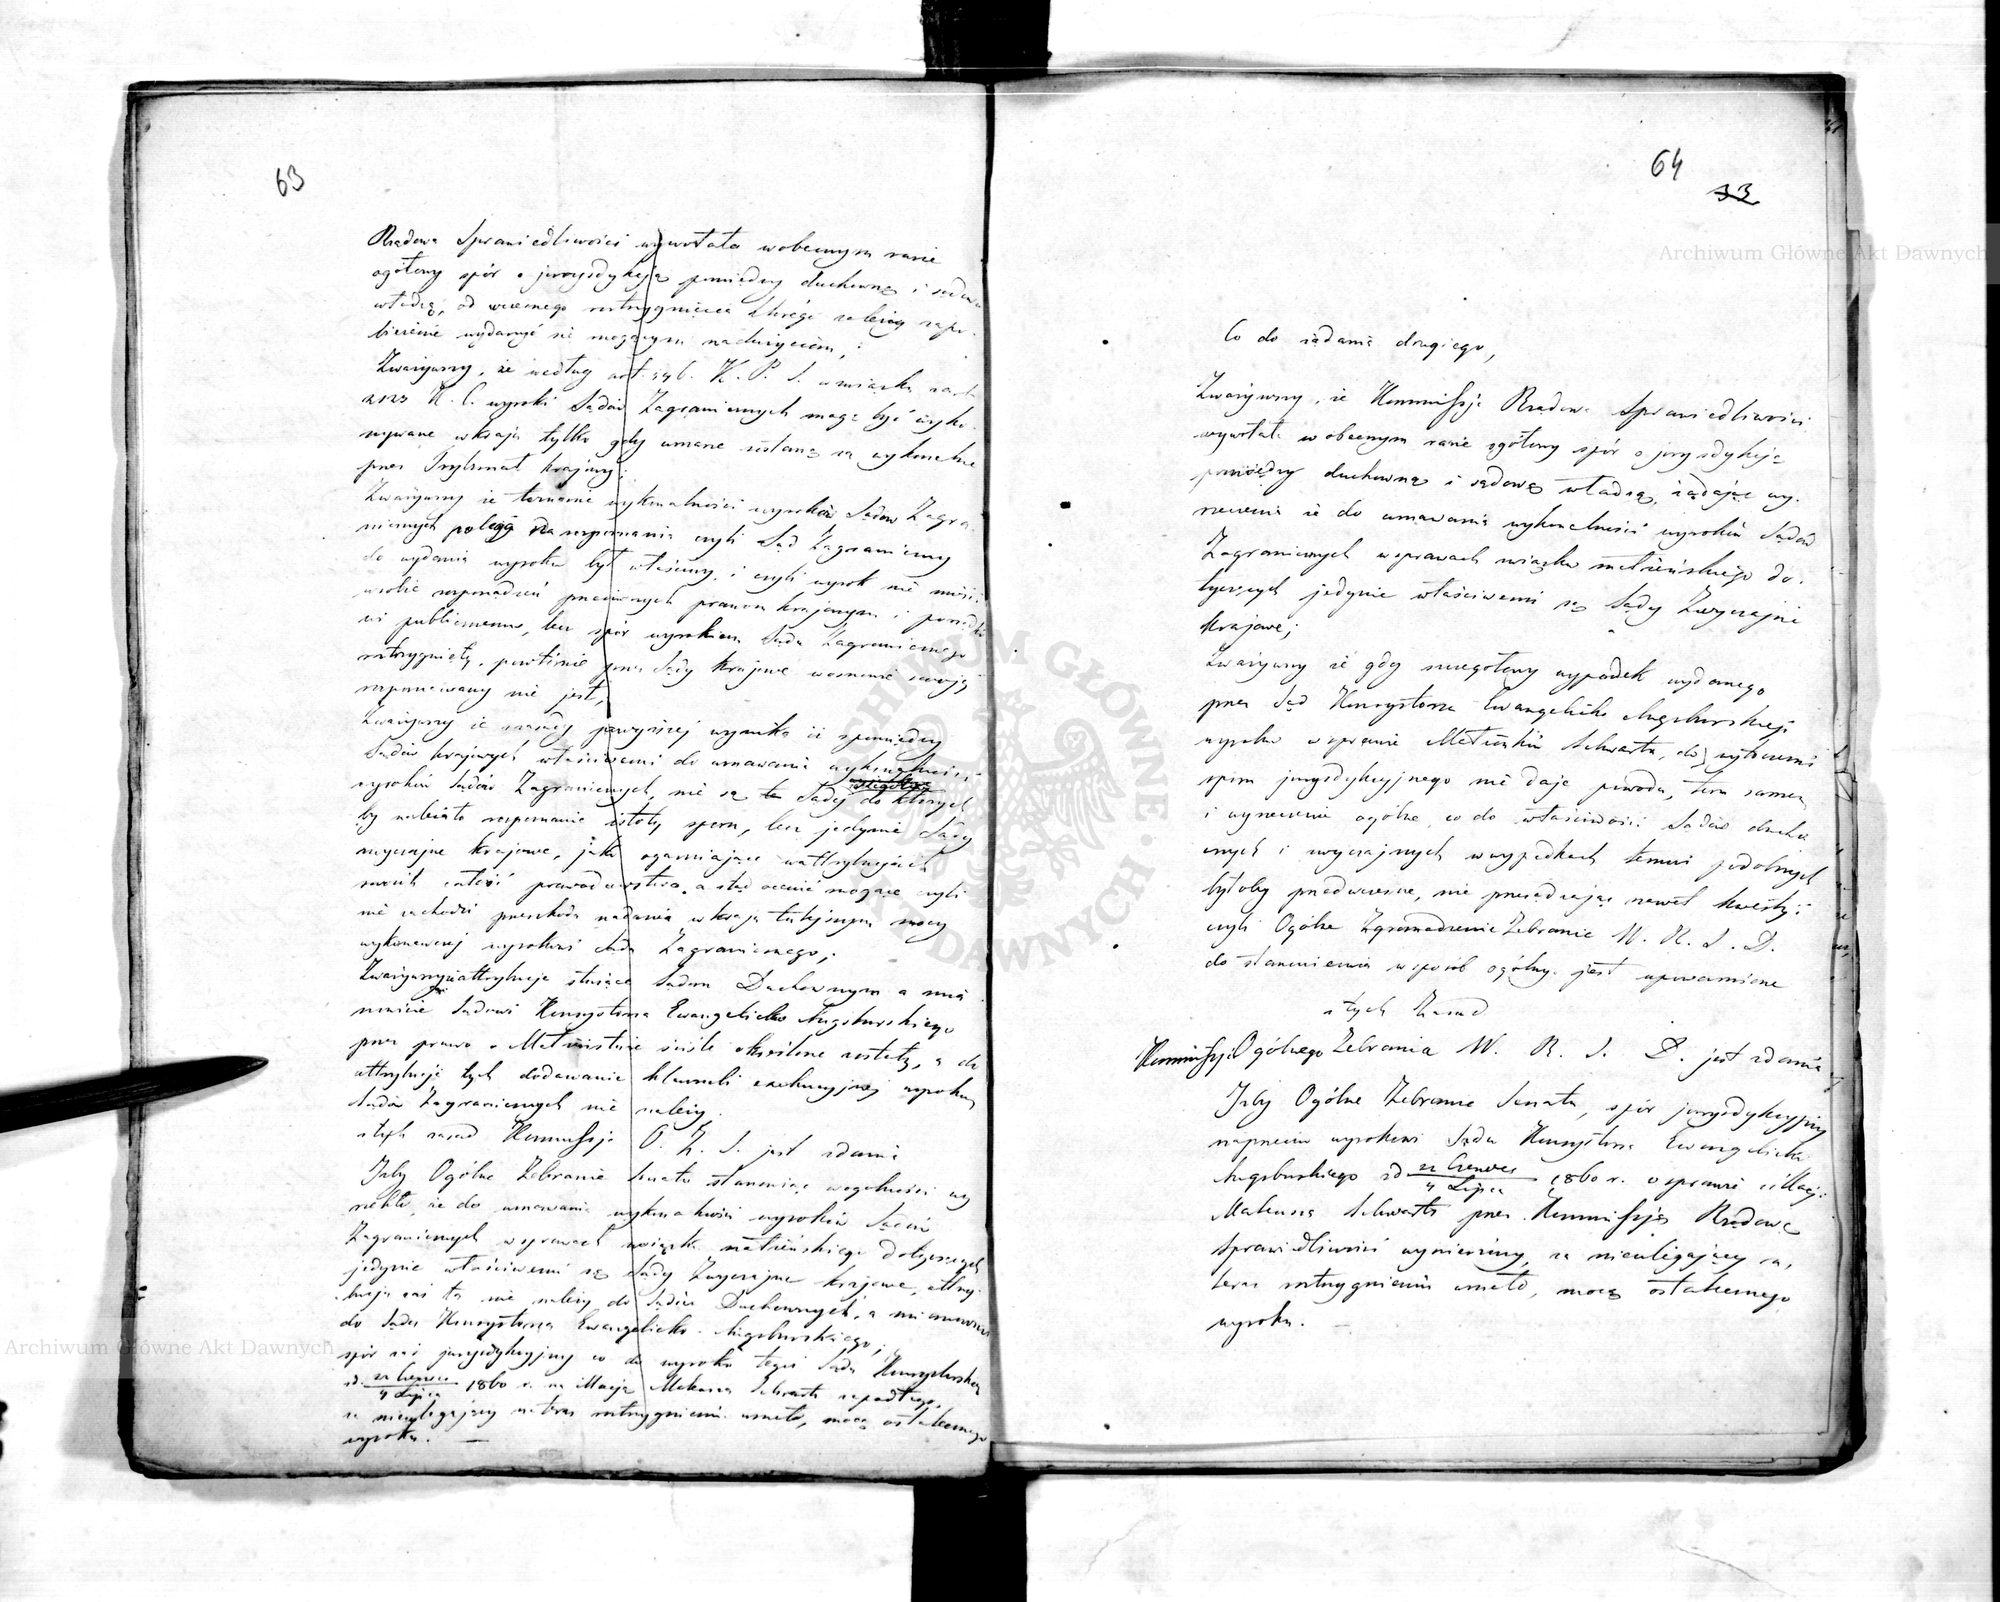 63
Rządowa Sprawiedliwości wywołała w obecnym razie
ogólony spór o jurysdykcyą pomiędzy duchowną i sądową
władzą, od wczesnego roztrzygnięcia którego zależy zapo-
bieżenie wydarzyć się mogącym nadużyciom;
Zważywszy, że według art. 546. K. P. S. w związku z art
2123 K. C. wyroki Sądów Zagranicznych mogą być wyko-
nywane w kraju tylko gdy uznane zostaną za wykonalne
przez Trybunał krajowy;
Zważywszy że uznanie wykonalności wyroków Sądów Zagra-
nicznych polega na rozpoznaniu czyli Sąd Zagraniczny
do wydania wyroku był właściwy, i czyli wyrok nie mieści
w sobie rozporządzeń przeciwnych prawom krajowym i porządko-
wi publicznemu, lecz spór wyrokiem Sądu Zagranicznego
roztrzygnięty, powtórnie przez Sądy krajowe
rozpoznawany nie jest,
Zważywszy że z zasady powyższej wynika iż spomiędzy
Sądów krajowych właściwemi do uznawania wykonalności
wyroków Sądów Zagranicznych, nie są te Sądy do których
by należało rozpoznanie istoty sporu, lecz jedynie Sądy
zwyczajne krajowe, jako ogarniające w attrybucyach
swoich całość prawodawstwa, a stąd ocenić mogące czyli
nie zachodzi przeszkoda nadania w kraju tutejszym mocy
wykonawczej wyrokowi Sądu Zagranicznego;
Zważywszy iż attrybucye służące Sądom Duchownym a mia-
nowicie Sądowi Konsystorza Ewangelicko Augsburskiego
przez prawo o Małżeństwie ściśle określone zostały, a do
attrybucyi tych dodawanie klauzuli exekucyjnej wyrokom
Sądów Zagranicznych nie należy.
z tych zasad Kommissja O. Z. S. jest zdania
Iżby Ogólne Zebranie Senatu stanowiąc w ogólności wy
rzekło, że do uznawania wykonalności wyroków Sądów
Zagranicznych w sprawach związku małżeńskiego dotyczących
jedynie właściwemi są Sądy Zwyczajne krajowe, attry-
bucja zaś ta nie należy do Sądów Duchownych, a mianowicie
do Sądu Konsystorza Ewangelicko-Augsburskiego;
spór zaś jurysdykcyjny co do wyroku tegoż Sądu Konsystorza
z d. 22 Czerwca / 4 Lipca 1860 r. na illacją Mateusza Schwartz zapadłego,
za nieulegający na teraz roztrzygnieniu uznało, mocą ostatecznego
wyroku.
64
33
Co do żądania drugiego,
Zważywszy, że Kommissja Rządowa Sprawiedliwości
wywołała w obecnym razie ogólony spór o jurysdykcją
pomiędzy duchowną i sądową władzą, żądając wy-
rzeczenia że do uznawania wykonalności wyroków Sądów
Zagranicznych w sprawach związku małżeńskiego do-
tyczących jedynie właściwemi są Sądy Zwyczajne
krajowe;
Zważywszy że gdy szczegółowy wypadek wydanego
przez Sąd Konsystorza Ewangelicko Augsburskiego
wyroku w sprawie Małżonków Schwartz, do wytoczenia
sporu jurysdykcyjnego nie daje powodu, tem samem
i wyrzeczenie ogólne co do właściwości Sądów ducho
wnych i zwyczajnych w wypadkach temuż podobnych
byłoby przedwczesne, nie przesądzając nawet kwestyi
czyli Ogólne Zgromadzenie Zebranie W. R. S. D.
do stanowienia w sposób ogólny jest upoważnione
z tych Zasad
Kommissja Ogólnego Zebrania W. R. S. D. jest zdania
Iżby Ogólne Zebranie Senatu, spór jurysdykcyjny
naprzeciw wyrokowi Sądu Konsystorza Ewangelicko
Augsburskiego z d. 22 Czerwca / 4 Lipca 1860 r. w sprawie z illacji
Mateusza Schwartz przez Kommissją Rządową
Sprawiedliwości wymierzony, za nieulegający na
teraz roztrzygnieniu uznało, mocą ostatecznego
wyroku.
Archiwum Główne Akt Dawnych
Archiwum Główne Akt Dawnych
ARCHIWUM GŁÓWNE AKT DAWNYCH